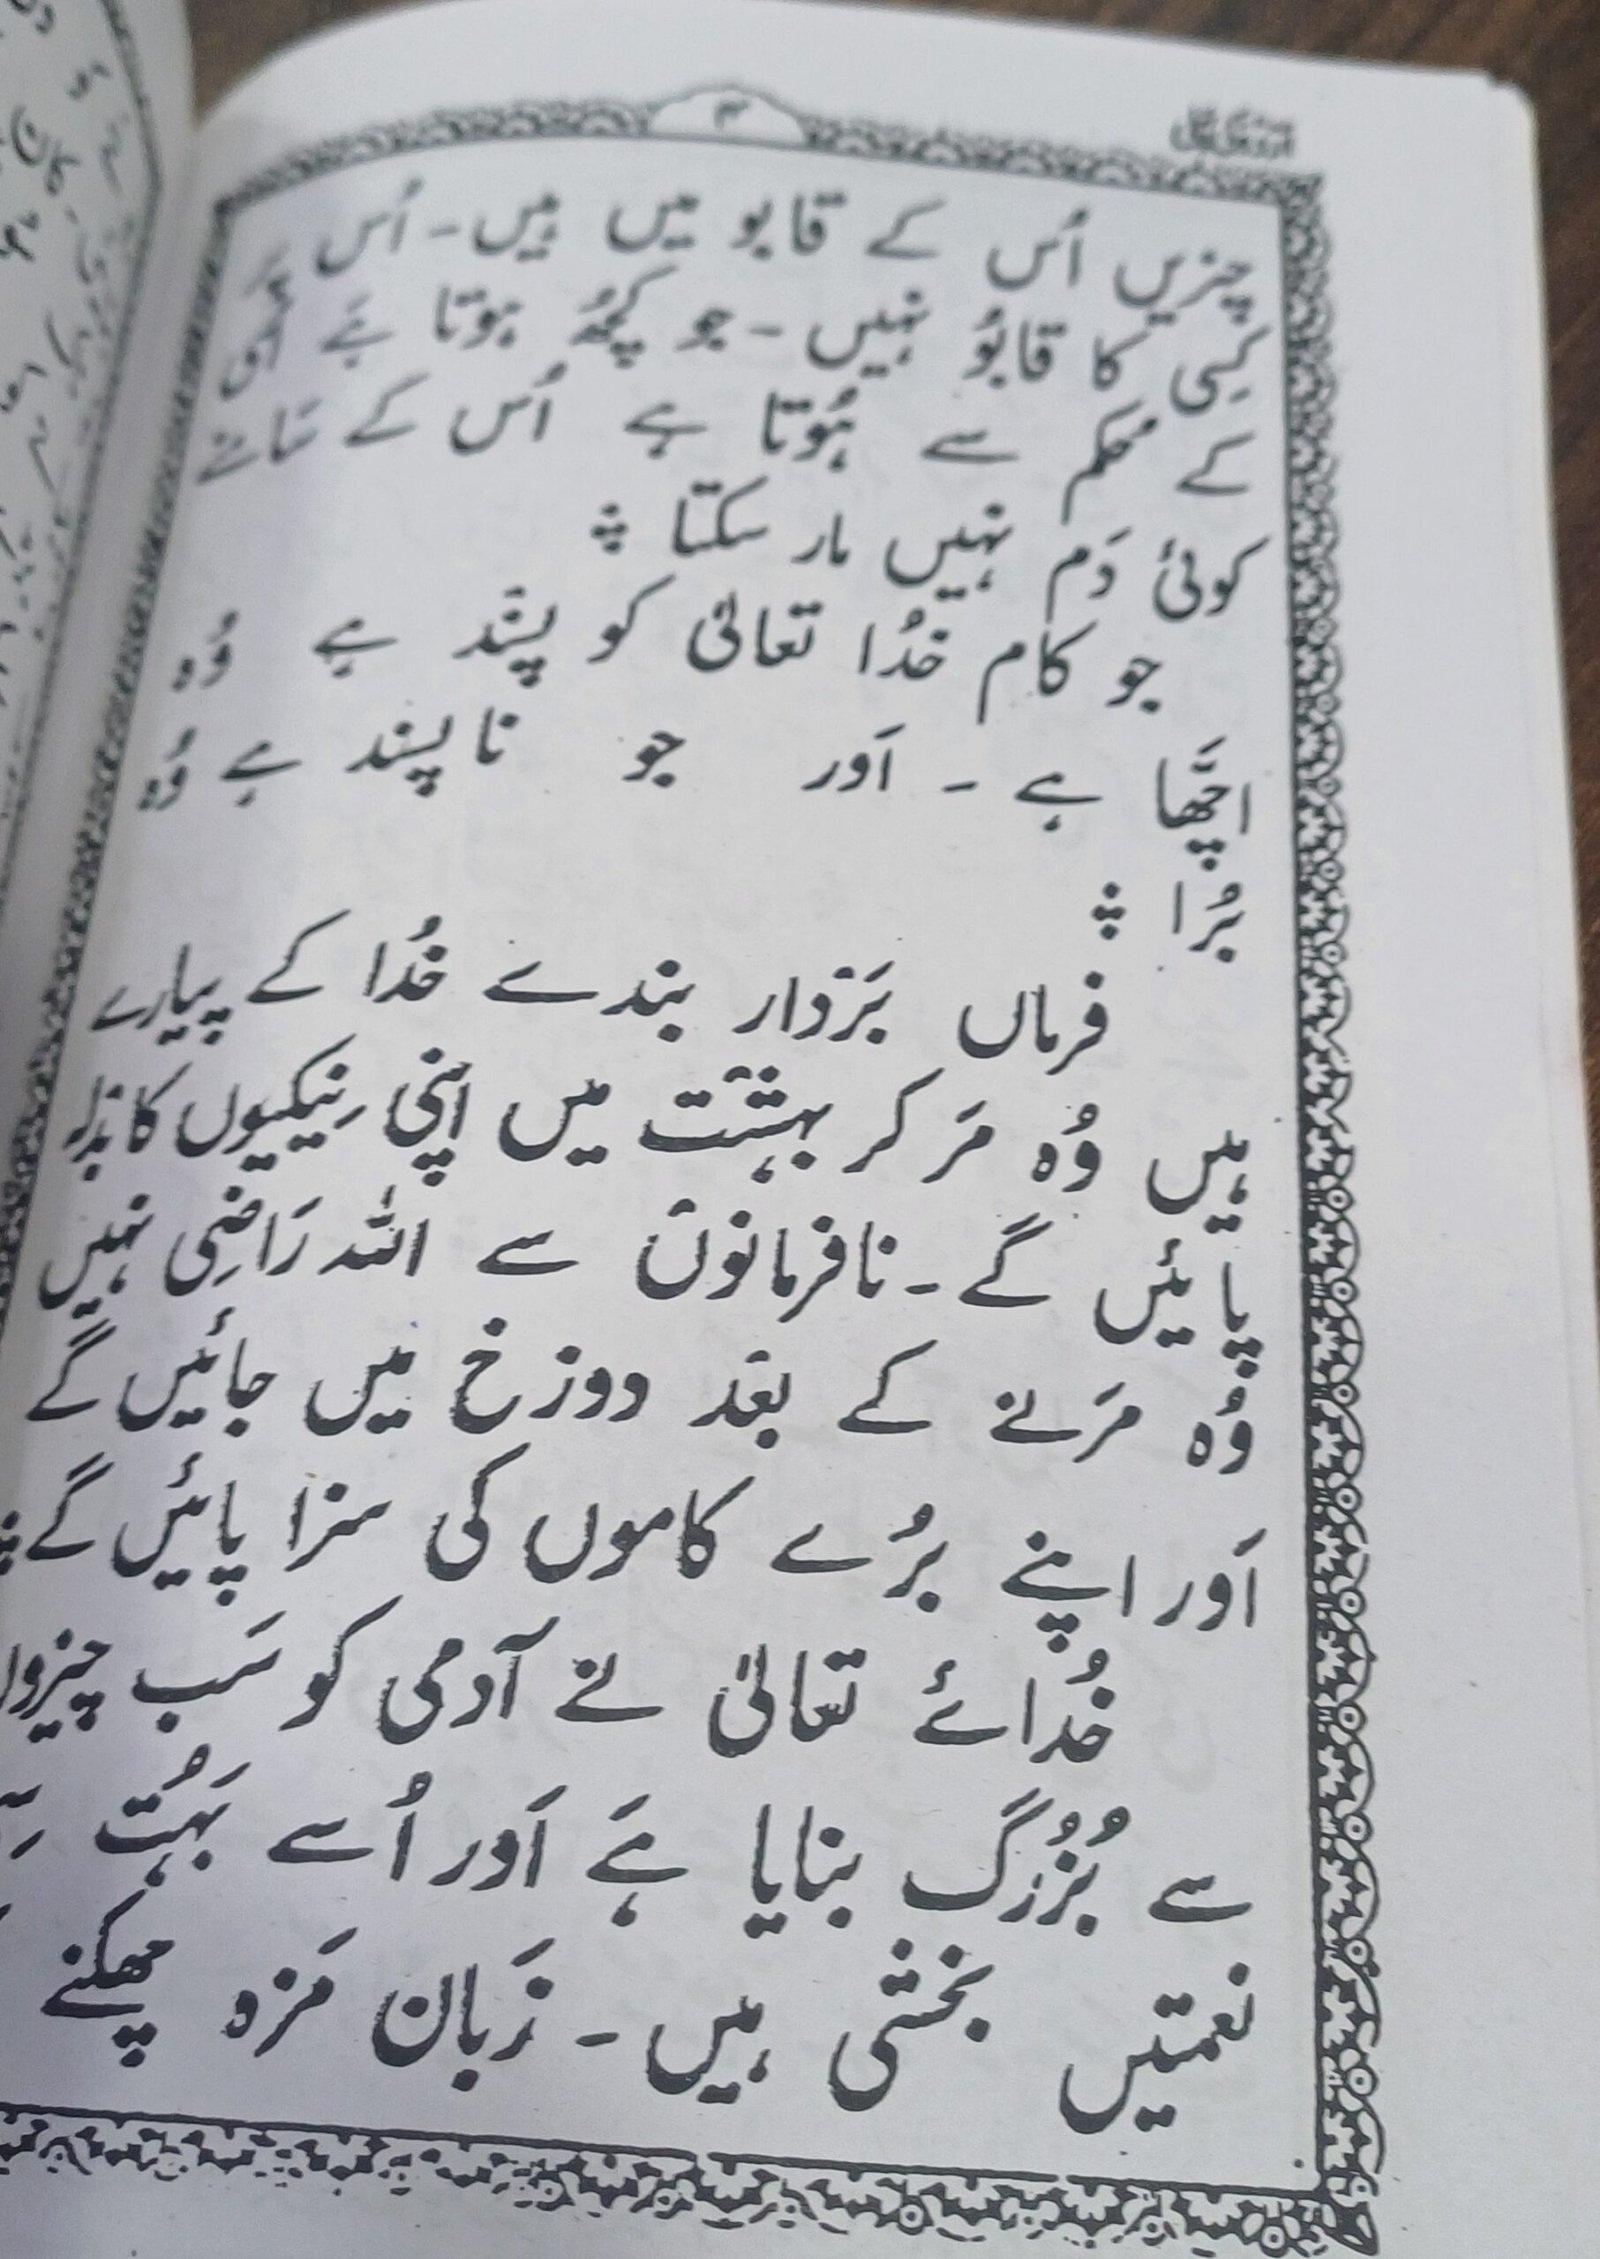 ۳
چیزیں اُس کے قابو میں ہیں۔ اُس پَر
کِسی کا قابُو نہیں۔ جو کُچھ ہوتا ہَے اُسی
کے حُکم سے ہُوتا ہے اُس کے سَامنے
کوئی دَم نہیں مار سکتا ؞
جو کام خُدا تعالیٰ کو پسَند ہے وُہ
اچھّا ہے ۔ اَور جو ناپسند ہے وُہ
بُرا ؞
فرماں بَرْدار بندے خُدا کے پیارے
ہیں وُہ مَر کر بہشْت میں اپنی نِیکیوں کا بدلہ
پائیں گے۔ نافرمانوں سے اللہ رَاضِی نہیں
وُہ مَرنے کے بعْد دوزخ میں جائیں گے
اَور اپنے بُرے کاموں کی سزا پائیں گے ؞
خُدائے تعالیٰ نے آدمی کو سَب چیزوں
سے بُزُرگ بنایا ہَے اَور اُسے بَہُت
نعمتیں بخشی ہیں۔ زَبان مَزہ چکھنے